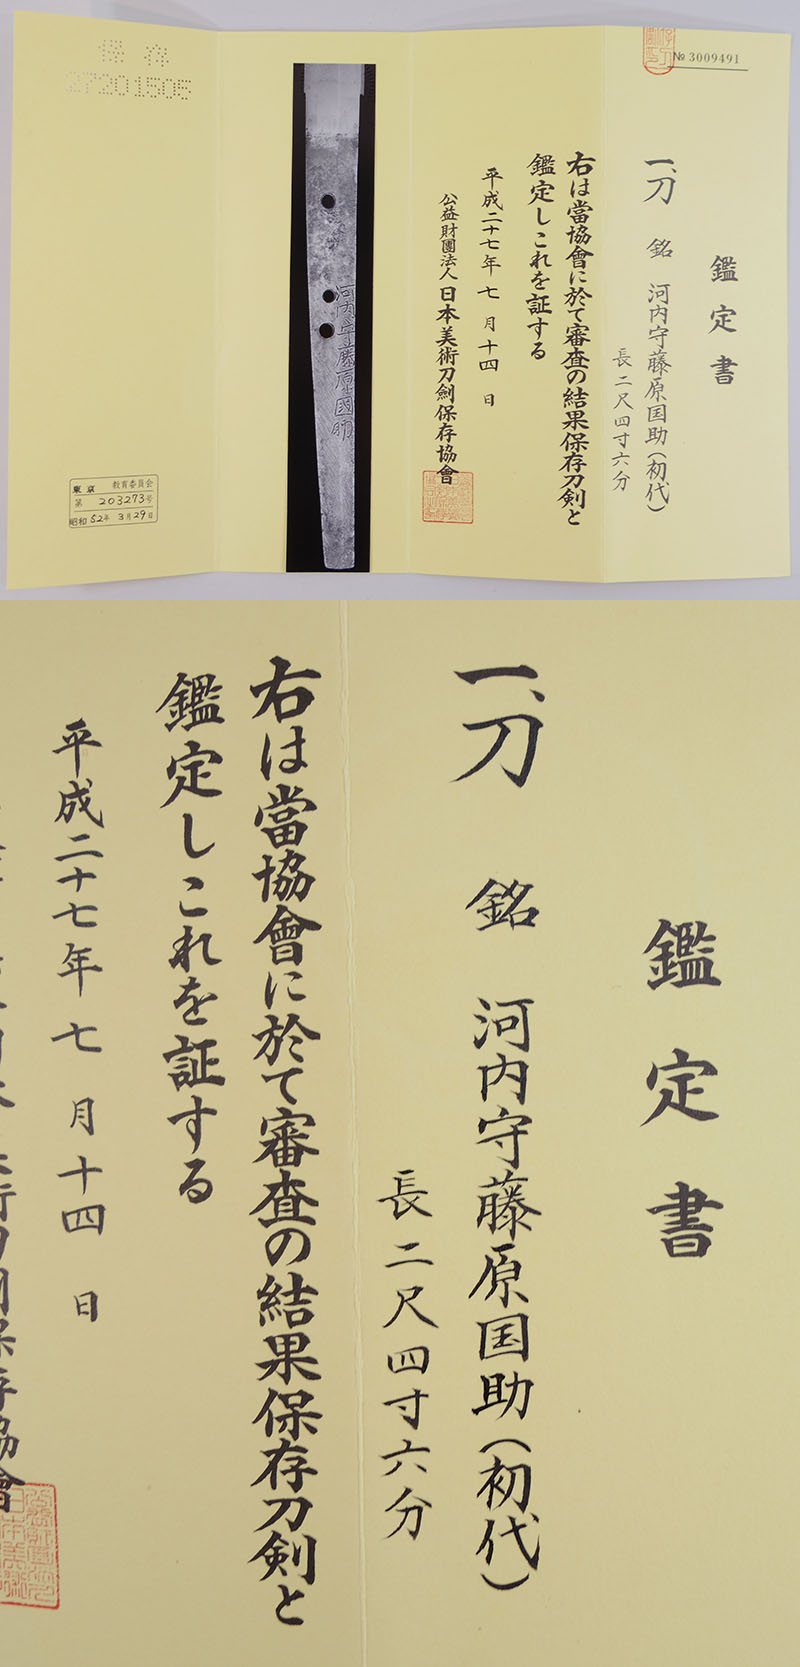 № 3009491
鑑定書
一、刀 銘 河内守藤原国助（初代）
長二尺四寸六分
右は當協會に於て審査の結果保存刀剣と
鑑定しこれを証する
平成二十七年七月十四日
公益財團法人日本美術刀劍保存協會
河内守藤原国助
保存
27201505
東京 教育委員会
第 203273号
昭和 52年 3月29日
鑑定書
一、刀 銘 河内守藤原国助（初代）
長二尺四寸六分
右は當協會に於て審査の結果保存刀剣と
鑑定しこれを証する
平成二十七年七月十四日